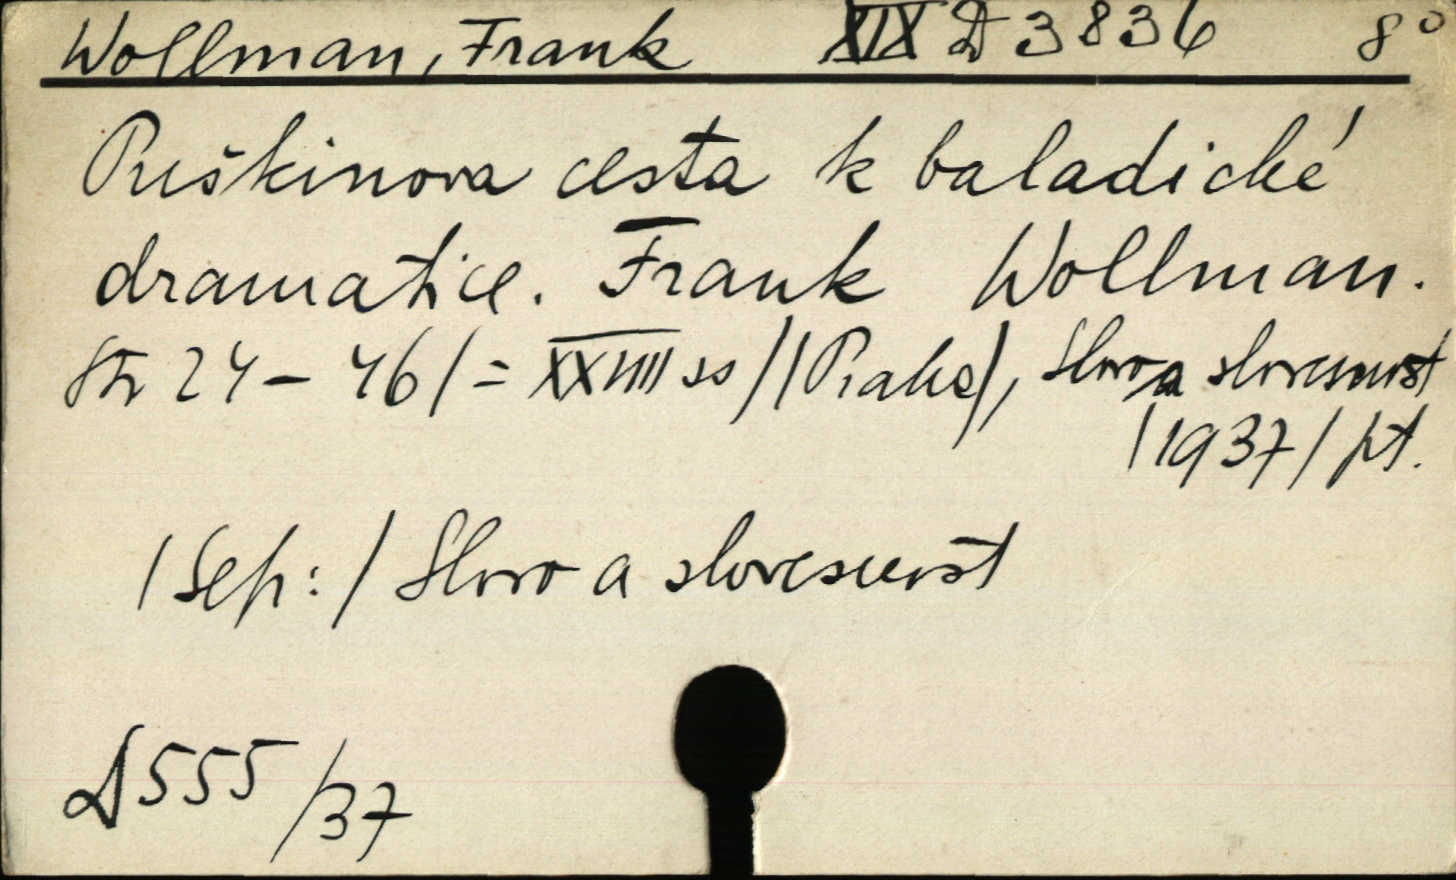 Wollman, Frank XIX D 3836 8°
Puškinova cesta k baladické
dramatice. Frank Wollman.
Str 24-46/= XXVIII ss/(Praha), Slovo a slovesnost
/1937/ pt.
/Sep:/ Slovo a slovesnost
D 555/37